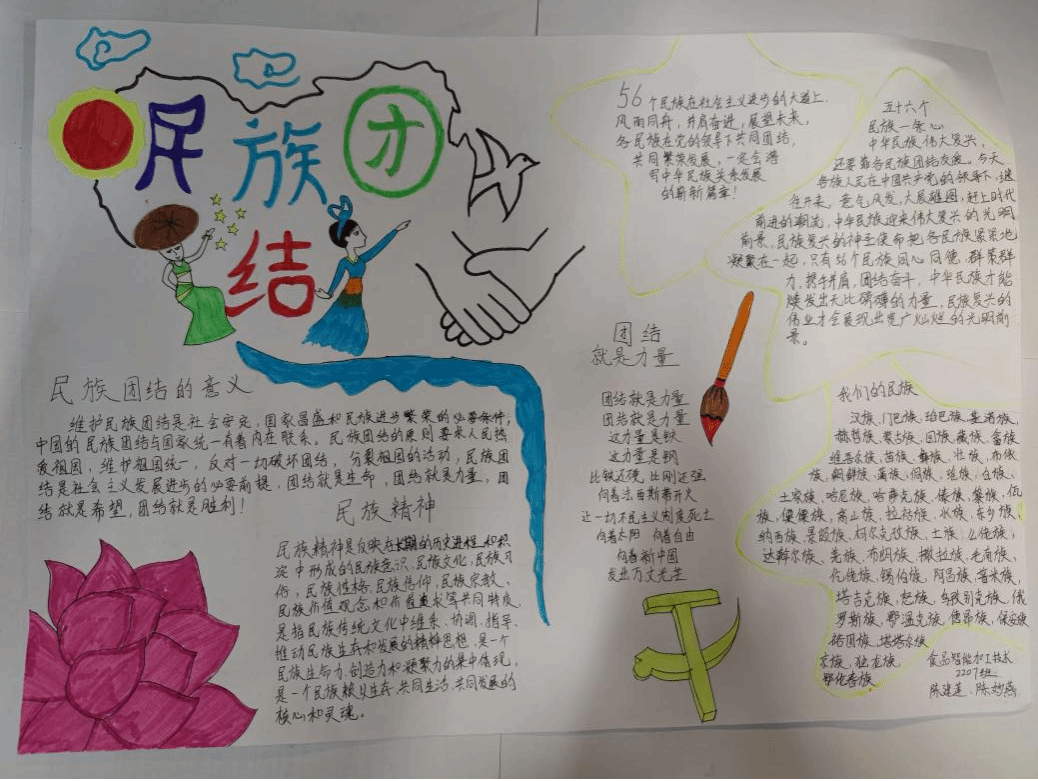 民族团
结
民族团结的意义
维护民族团结是社会安定,国家昌盛和民族进步繁荣的必要条件;
中国的民族团结与国家统一有着内在联系。民族团结的原则要求人民热
爱祖国,维护祖国统一,反对一切破坏团结,分裂祖国的活动,民族团
结是社会主义发展进步的必要前提,团结就是生命,团结就是力量,团
结就是希望,团结就是胜利!
民族精神
民族精神是反映在长期的历史进程和积
淀中形成的民族意识、民族文化,民族习
俗,民族性格、民族信仰,民族宗教、
民族价值观念和价值追求等共同特质,
是指民族传统文化中维系、协调、指导、
推动民族生存和发展的精粹思想,是一个
民族生命力、创造力和凝聚力的集中体现,
是一个民族赖以生存、共同生活、共同发展的
核心和灵魂。
56个民族在社会主义进步的大道上,
风雨同舟,并肩奋进,展望未来,
各民族在党的领导下共同团结,
共同繁荣发展,一定会谱
写中华民族关系发展
的崭新篇章!
团结
就是力量
团结就是力量
团结就是力量
这力量是铁
这力量是钢
比铁还硬,比钢还强
向着法西斯蒂开火
让一切不民主义制度死亡
向着太阳 向着自由
向着新中国
发出万丈光芒
五十六个
民族一条心
中华民族伟大复兴,
还要靠各民族团结友爱。今天,
各族人民在中国共产党的领导下,继
往开来,意气风发,大展雄图,赶上时代
前进的潮流,中华民族迎来伟大复兴的光明
前景,民族复兴的神圣使命把各民族紧紧地
凝聚在一起,只有56个民族同心同德,群策群
力,携手并肩,团结奋斗,中华民族才能
焕发出无比磅礴的力量,民族复兴的
伟业才会展现出宽广灿烂的光明前
景。
我们的民族
汉族、门巴族、珞巴族、基诺族、
赫哲族、蒙古族、回族、藏族、畲族
维吾尔族、苗族、彝族、壮族、布依
族、朝鲜族、满族、侗族、瑶族、白族、
土家族、哈尼族、哈萨克族、傣族、黎族、佤
族,傈僳族、高山族、拉祜族、水族、东乡族、
纳西族、景颇族、柯尔克孜族、土族、仫佬族、
达斡尔族、羌族、布朗族、撒拉族、毛南族、
仡佬族、锡伯族、阿昌族、普米族、
塔吉克族、怒族、乌孜别克族、俄
罗斯族、鄂温克族、德昂族、保安族
裕固族、塔塔尔族
京族、独龙族
鄂伦春族
食品智能加工技术
2207班
陈建莲、陈妙燕